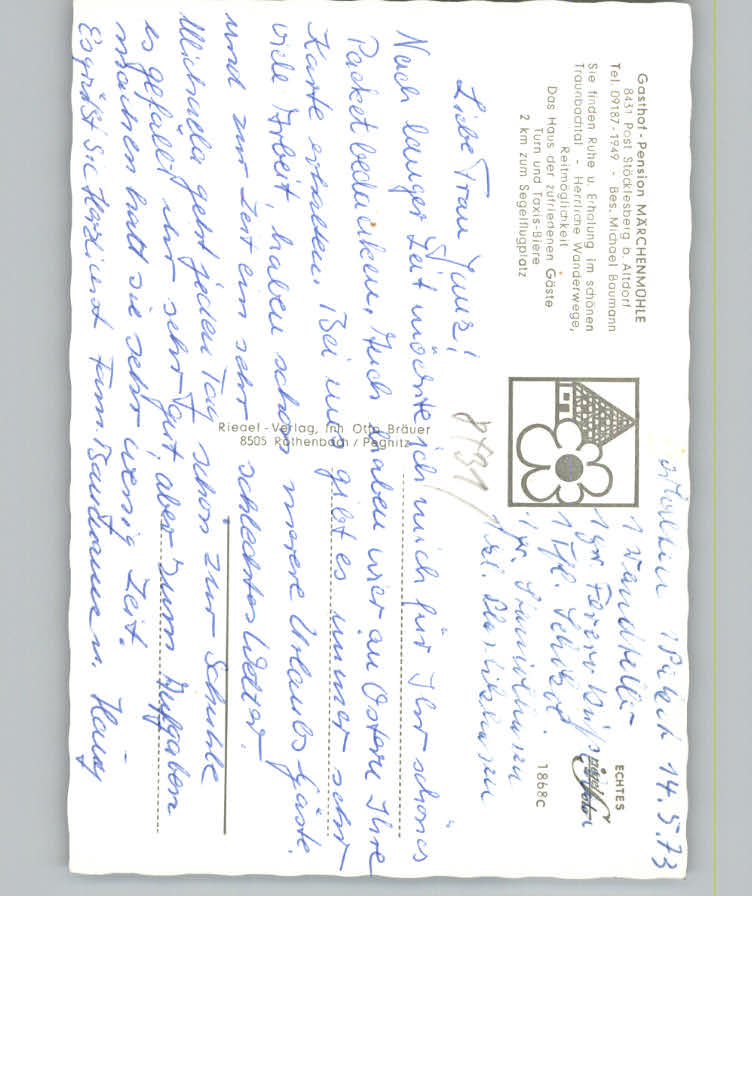 Gasthof - Pension MÄRCHENMÜHLE
8431 Post Stöcklesberg b. Altdorf
Tel. 09187-1949 - Bes. Michael Baumann
Sie finden Ruhe u. Erholung im schönen
Traunbachtal - Herrliche Wanderwege,
Reitmöglichkeit
Das Haus der zufriedenen Gäste
Turn und Taxis-Biere
2 km zum Segelflugplatz
14.5.73
1 Wandteller
1 gr. Ferrero
1 Tfl. Schokol.
1 gr.
1 kl.
ECHTES
1868c
Riegel-Verlag, Inh Otto Bräuer
8505 Röthenbach / Pegnitz
Liebe Frau
Nach langer Zeit möchte ich mich für Ihr schönes
Packet bedanken, Auch haben wir an Ostern Ihre
Karte erhalten. Bei uns gibt es immer sehr
viele Arbeit, haben schon unsere Urlaubs-Gäste.
und zur Zeit ein sehr schlechtes Wetter.
Michaela geht jeden Tag schon zur Schuhle
es gefällt ihr sehr gut, aber zum Aufgaben
machen hatt sie sehr wenig Zeit.
Es grüßt Sie Herzlichst Fam. Baumann